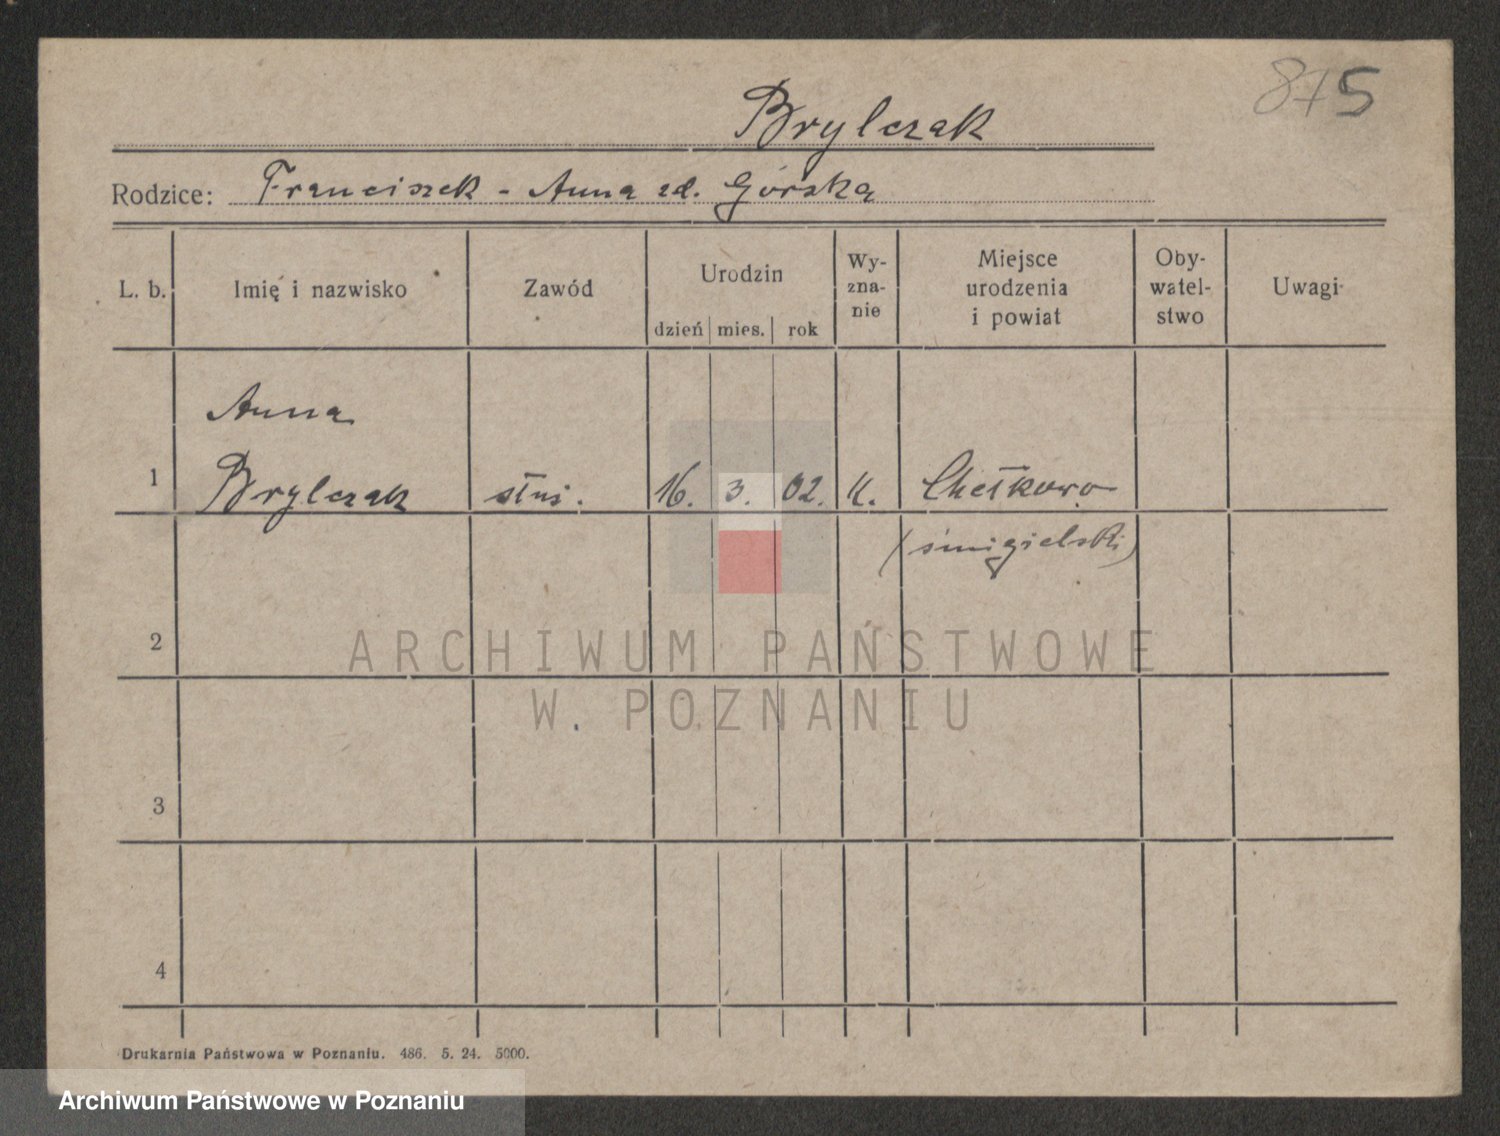 875
Brylczak
Rodzice: Franciszek - Anna zd. Górska
L. b. Imię i nazwisko Zawód Urodzin dzień mies. rok Wy-zna-nie Miejsce urodzenia i powiat Oby-watel-stwo Uwagi
Anna
1 Brylczak służ. 16. 3. 02. k. Chełkowo
(śmigielski)
2
ARCHIWUM PAŃSTWOWE
W POZNANIU
3
4
Drukarnia Państwowa w Poznaniu. 486. 5. 24. 5000.
Archiwum Państwowe w Poznaniu